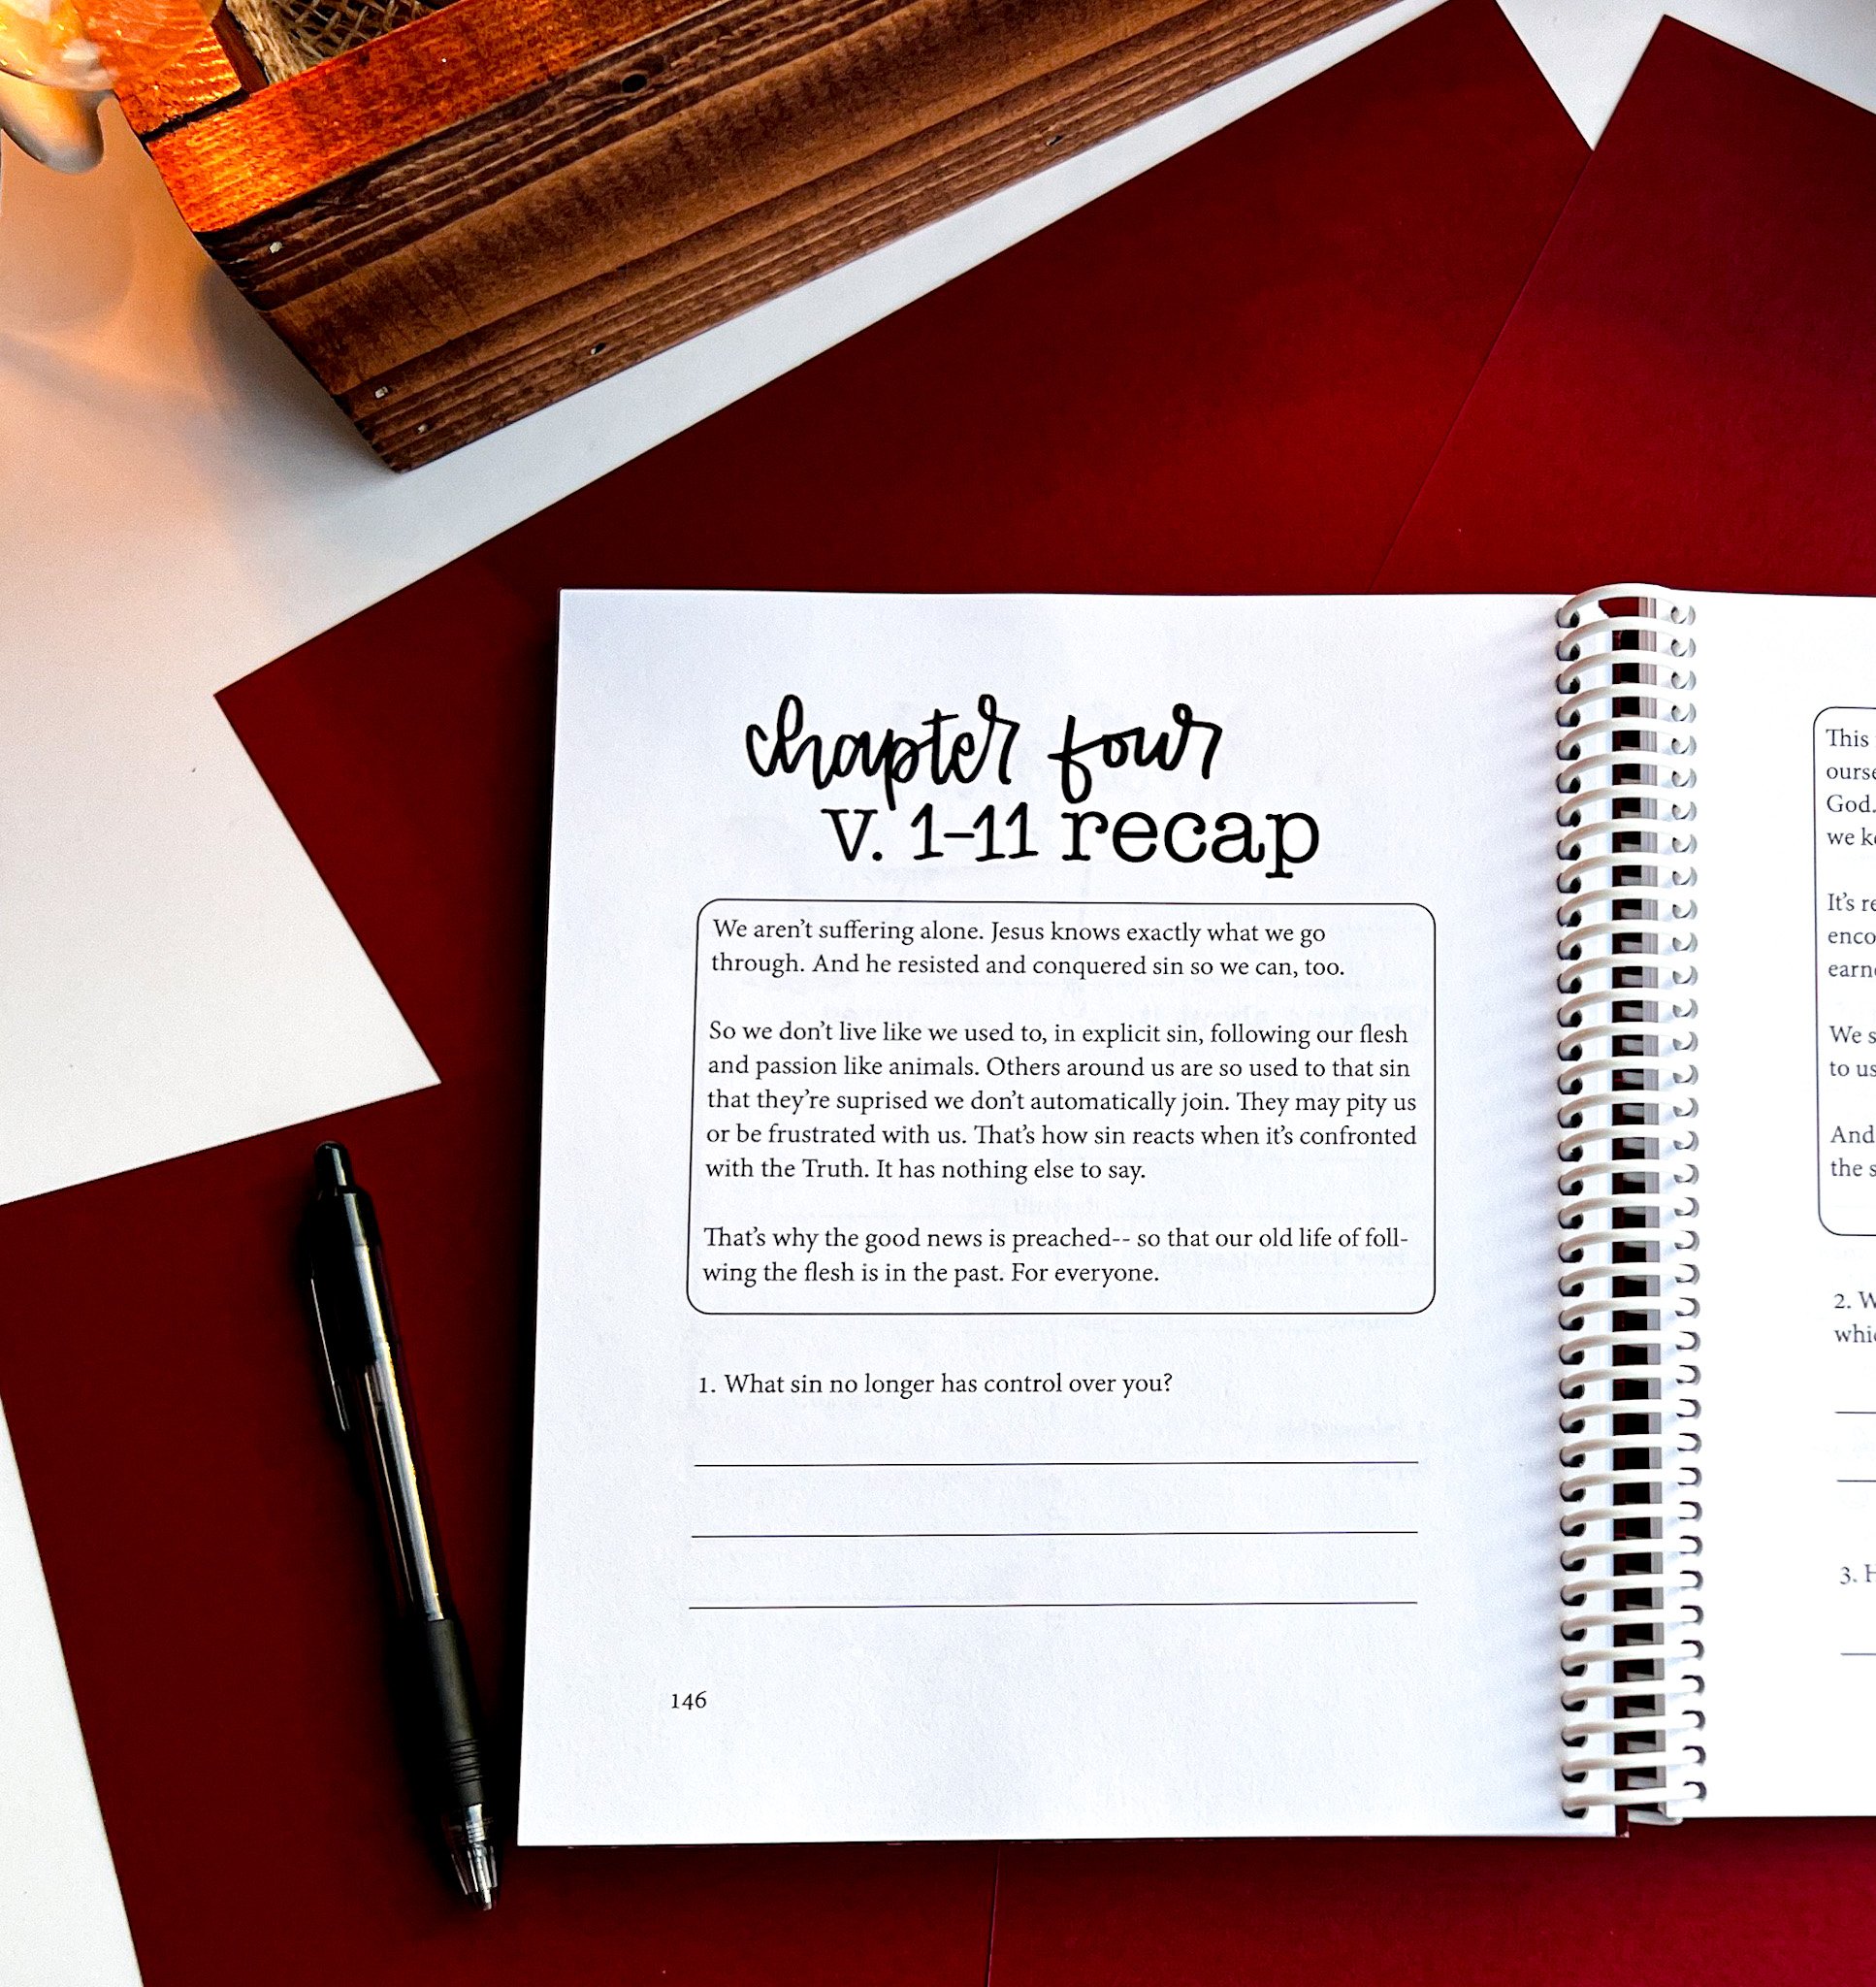 chapter four
v. 1-11 recap
We aren't suffering alone. Jesus knows exactly what we go
through. And he resisted and conquered sin so we can, too.
So we don't live like we used to, in explicit sin, following our flesh
and passion like animals. Others around us are so used to that sin
that they're suprised we don't automatically join. They may pity us
or be frustrated with us. That's how sin reacts when it's confronted
with the Truth. It has nothing else to say.
That's why the good news is preached-- so that our old life of foll-
wing the flesh is in the past. For everyone.
1. What sin no longer has control over you?
146
This
God.
we
It's
We
to us
And
the
2.
3.